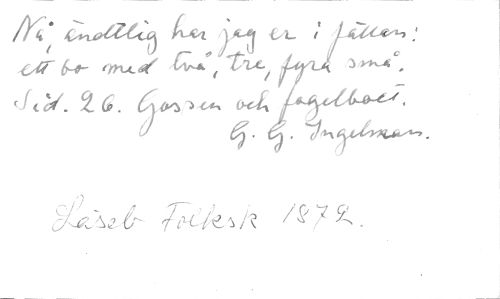 Nå, ändtlig har jag er i fällan:
ett bo med två, tre, fyra små.
Sid. 26. Gossen och fogelboet.
G. G. Ingelman.
Läseb Folksk 1872.